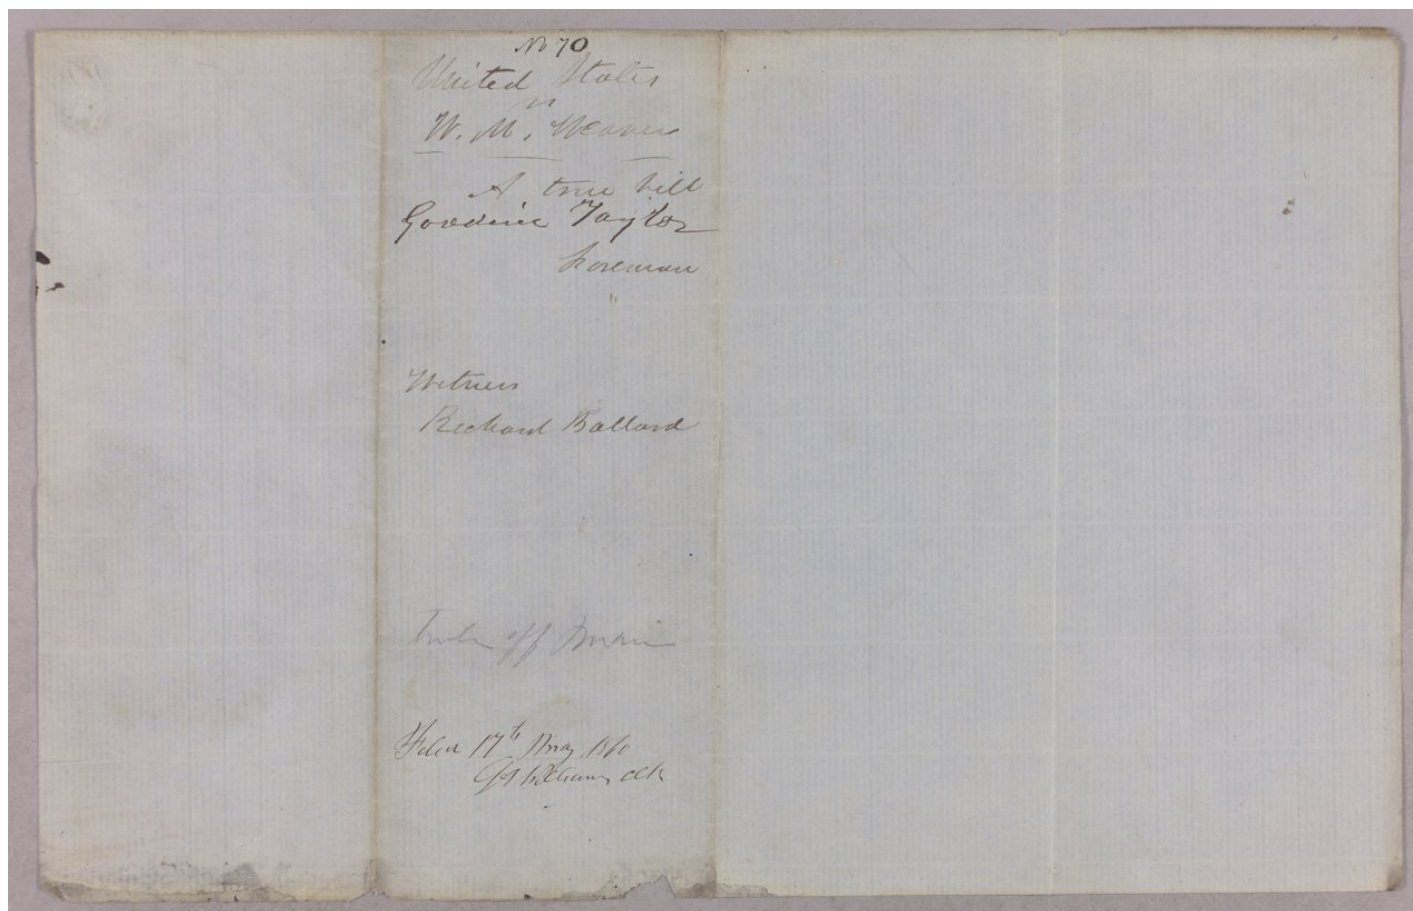 No 70
United States
vs
W. M. Weaver
A true bill
Taylor
Foreman
Witness
Richard Ballard
off
Filed 17th May 1860
Williams Clk